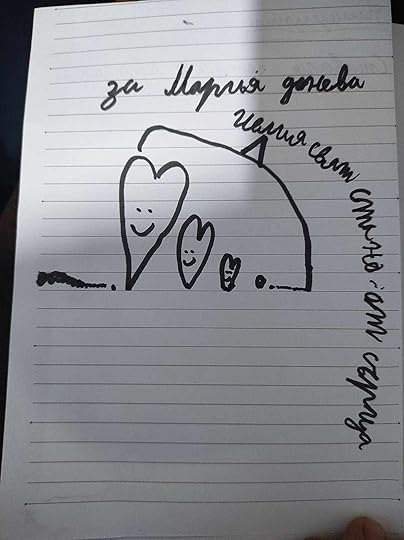 за Мария донева
Целия свят стана от сърца